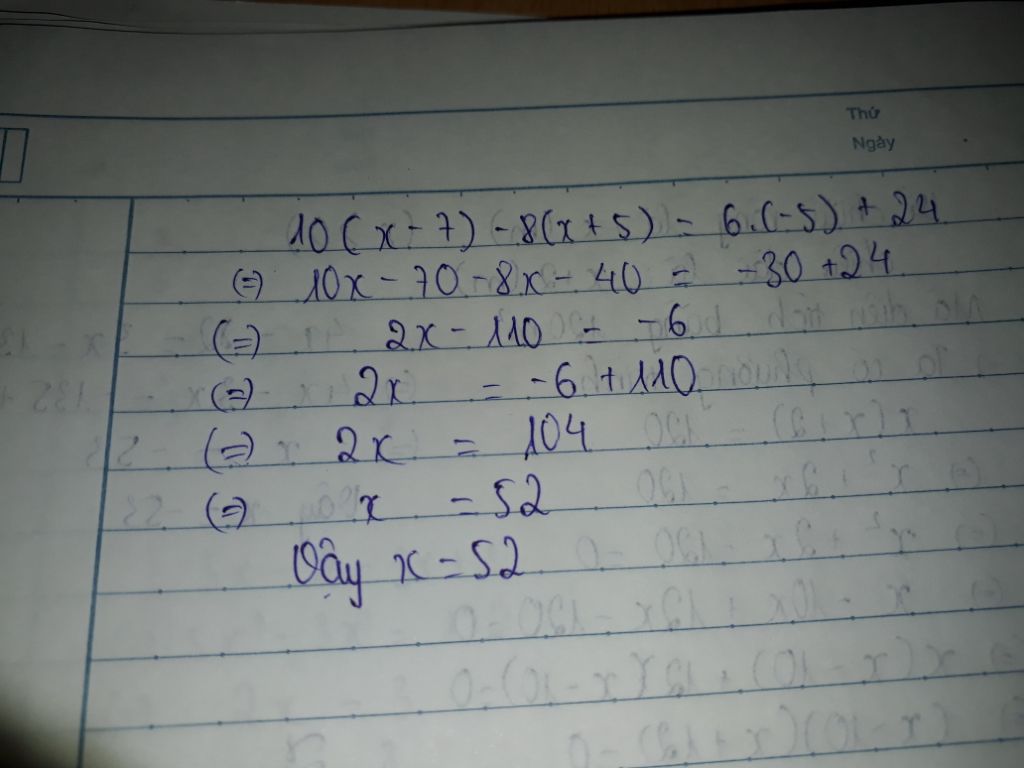 Thứ
Ngày
10(x-7)-8(x+5) = 6.(-5) + 24
(=) 10x-70-8x-40 = -30+24
(=) 2x-110 = -6
(=) 2x = -6+110
(=) 2x = 104
(=) x = 52
Vậy x=52